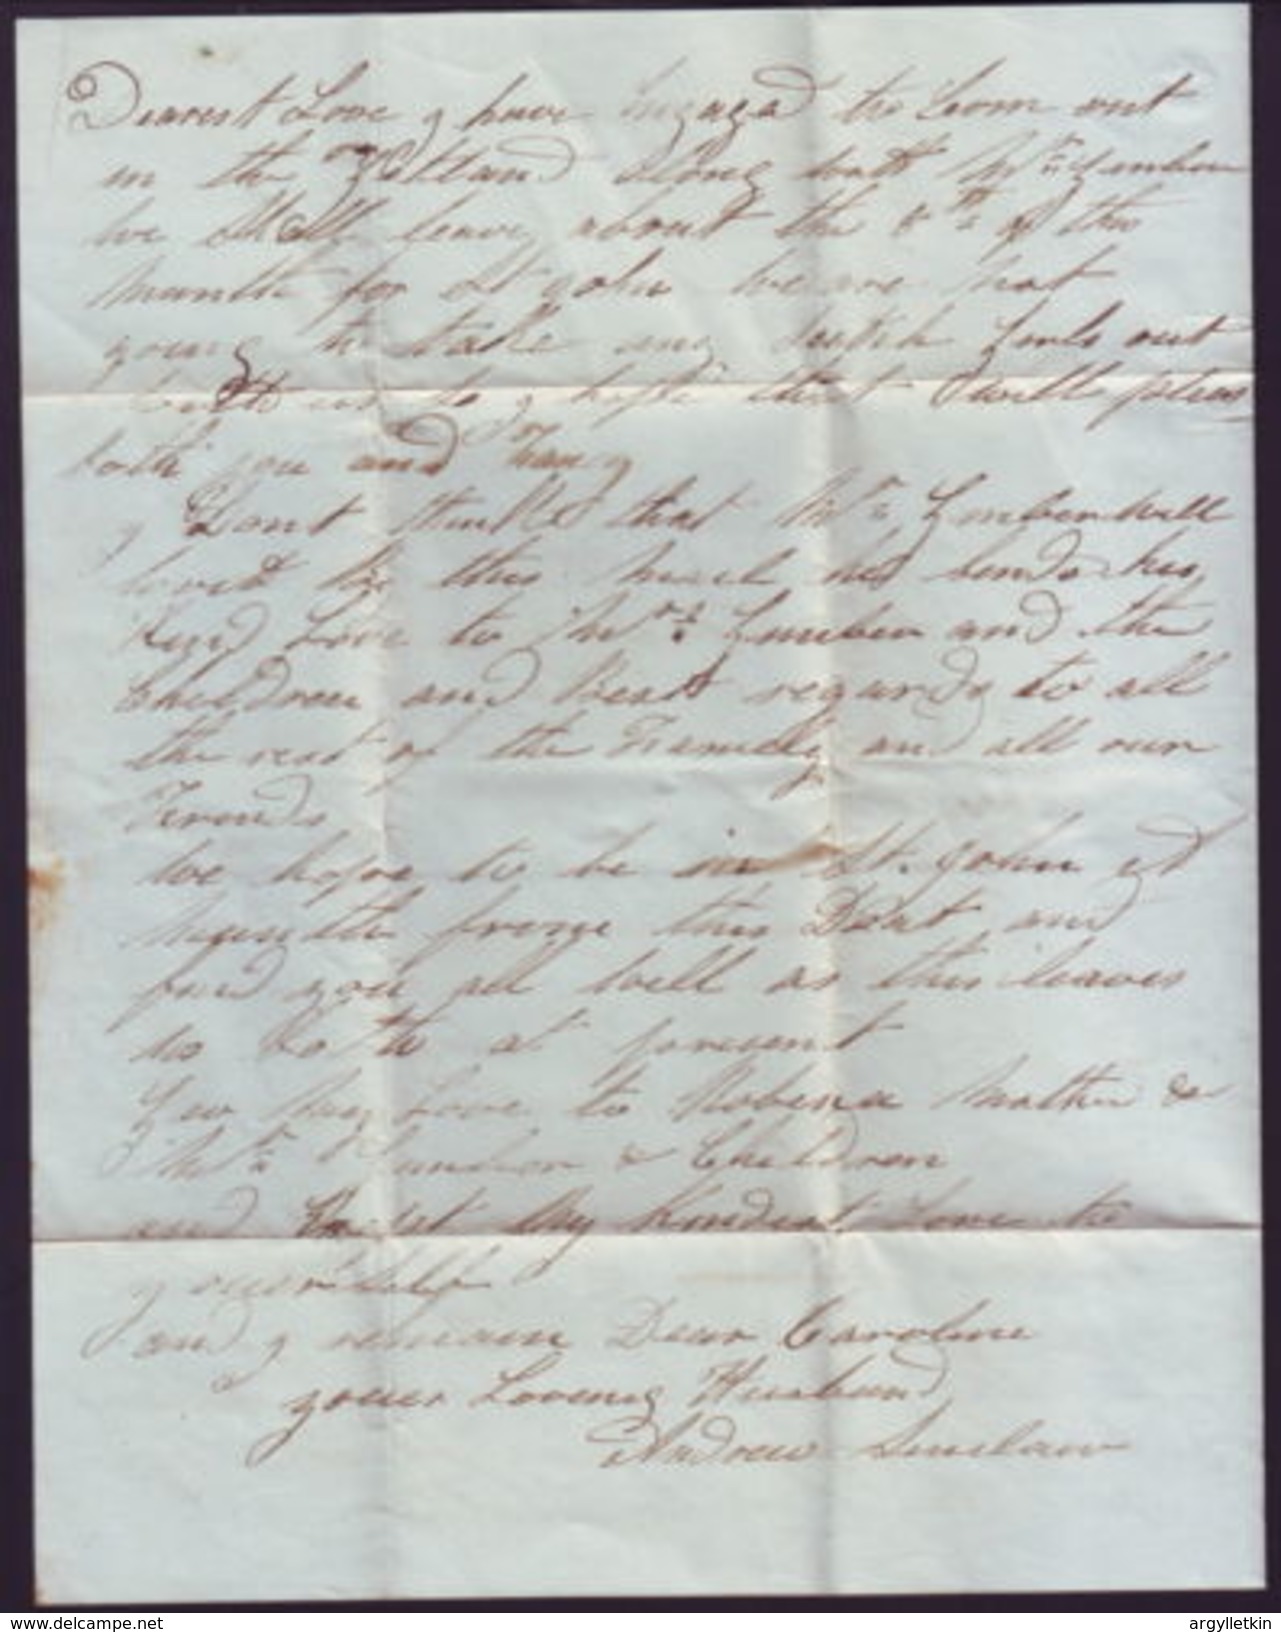 Dearest Love y have Ingagd to Com out
in the along with Mr
we Shall leave about the 8th of this
Month for St John we are not
going to take any Girls out
with us so y hope that will pleas
both you and Fany
y Dont think that Mr Limber will
by this he sends his
Kind Love to Mrs Limber and the
Children and Best regards to all
the rest of the Framely and all our
Frends
we hope to be in St. John
Munth frome this Deat and
find you all well as this leaves
us both at present
Giv my Love to Robena Mother &
Mr & Children
and my Kindest Love to
yourself
and y remain Dear Caroline
your Loveing Husband
Andrew Sinclair
argylletkin